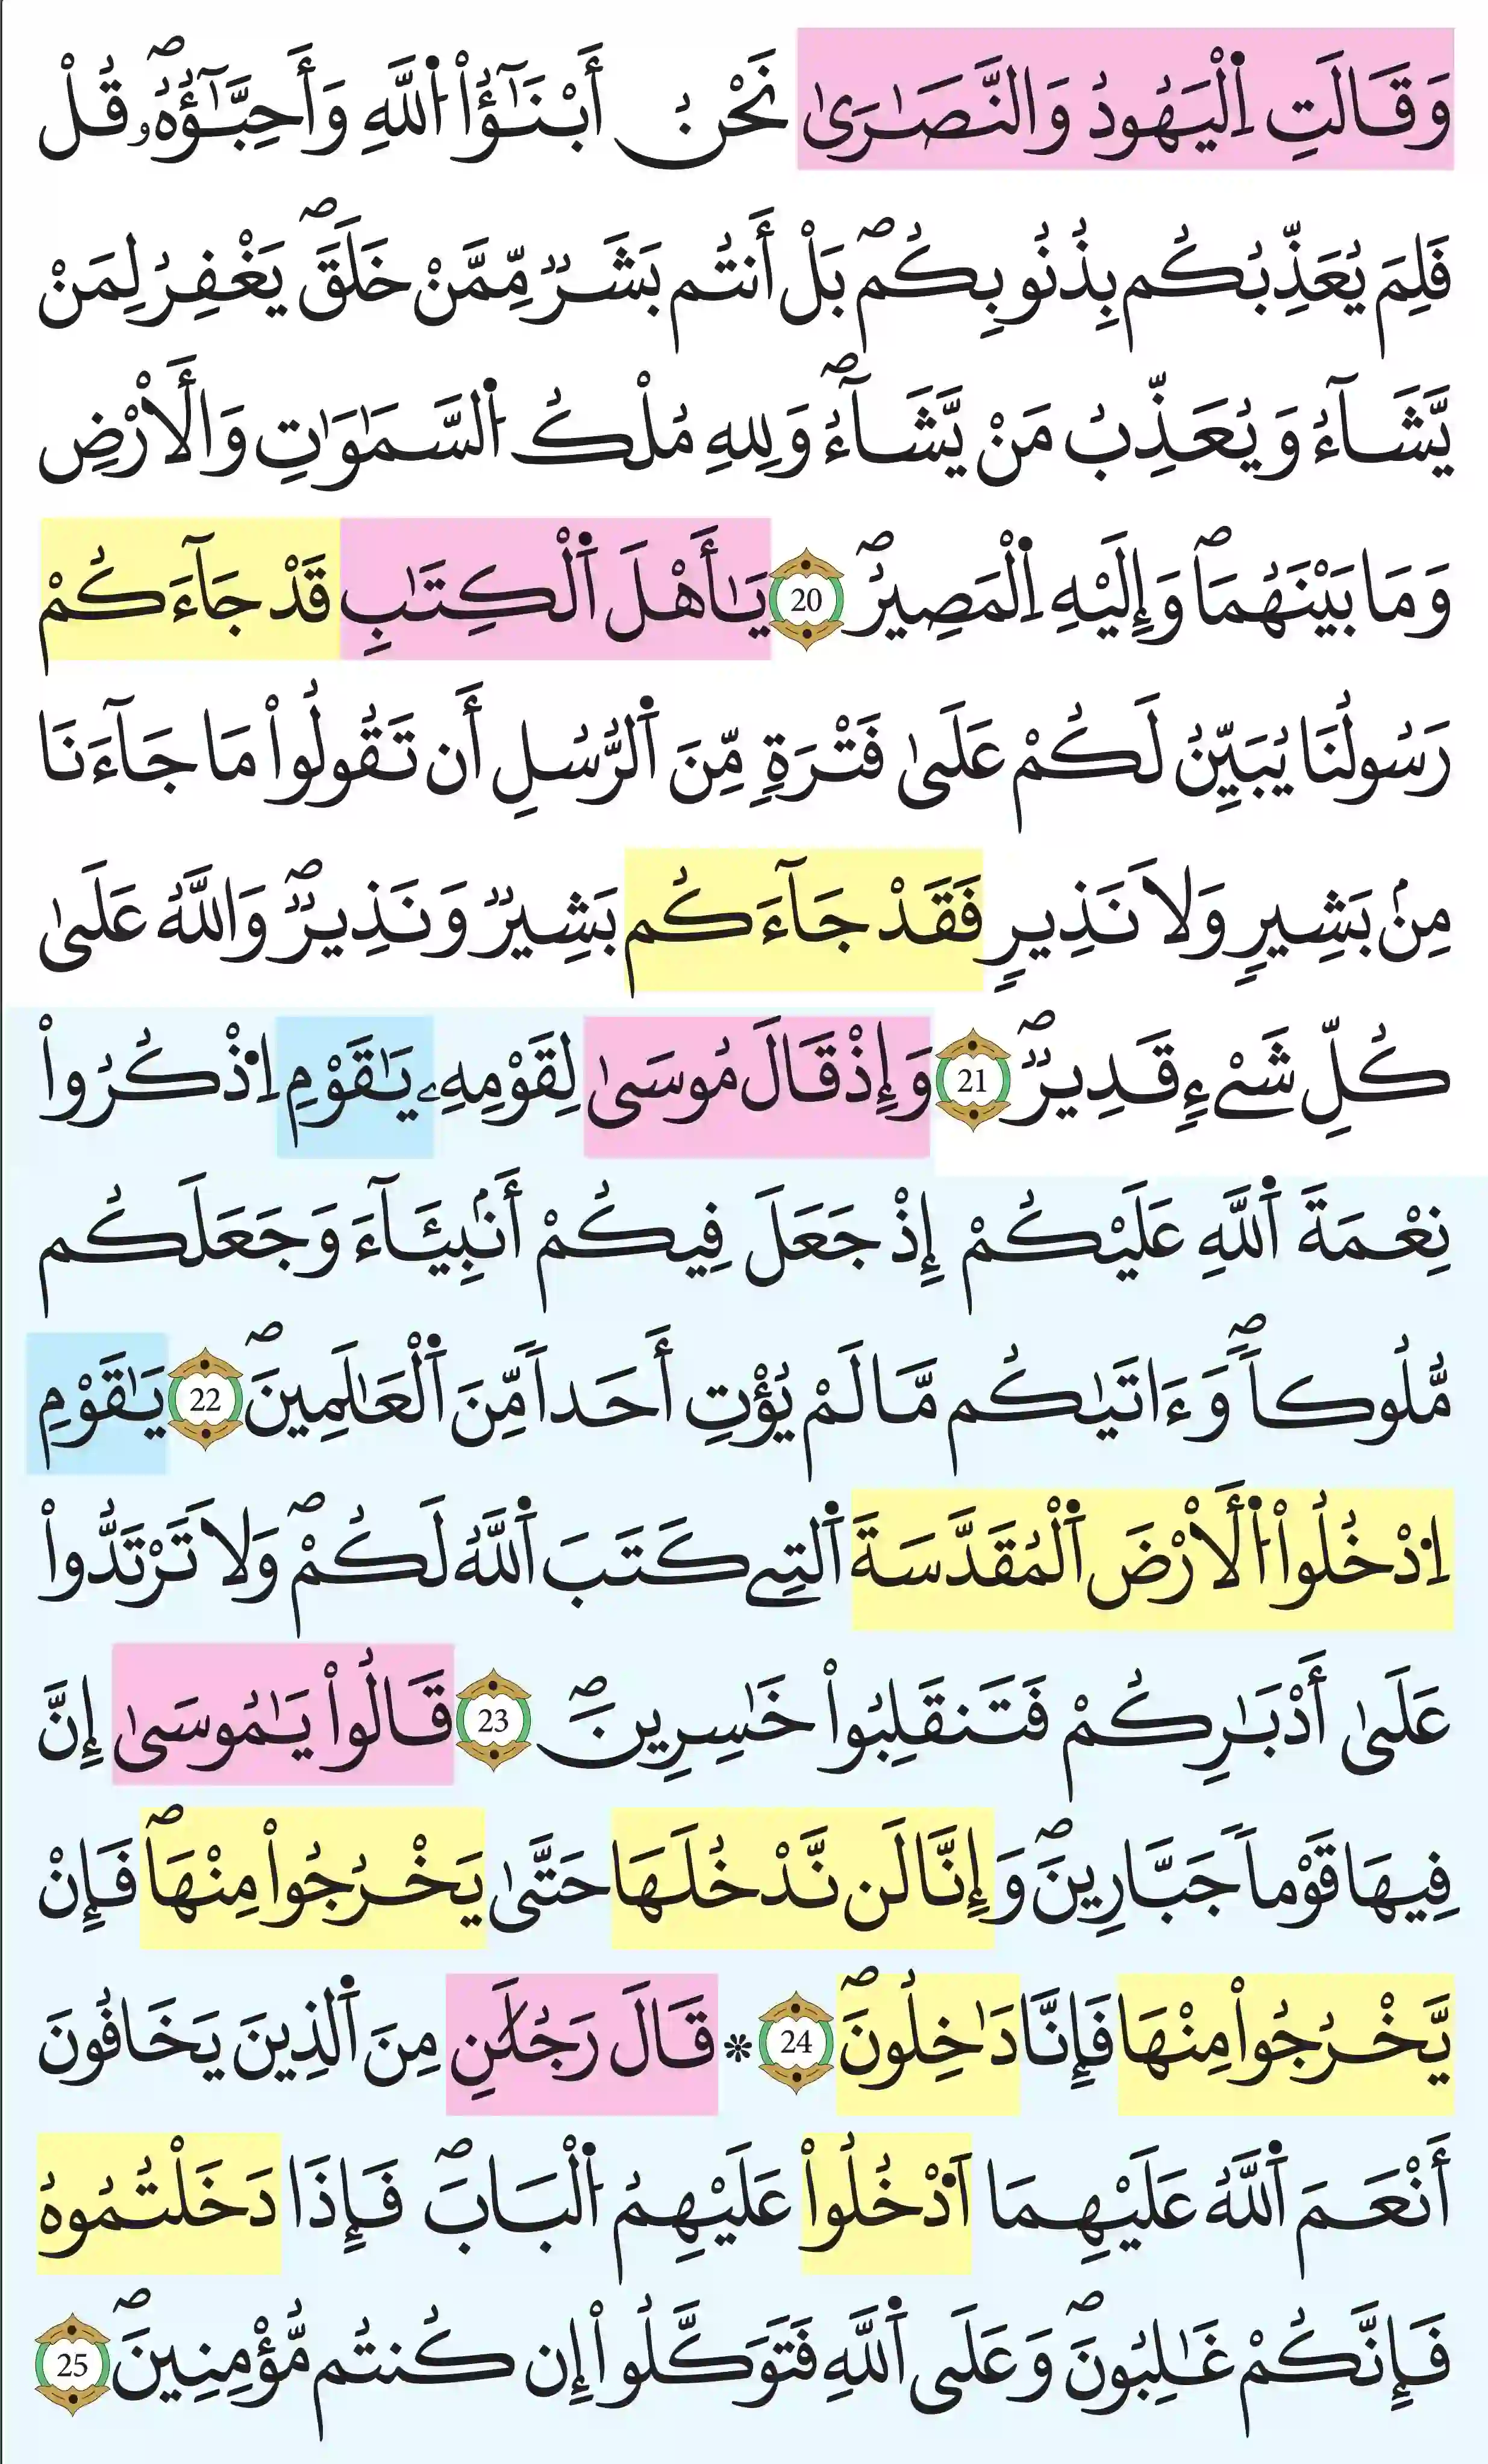 وَقَالَتِ اِ۬لْيَهُودُ وَالنَّصَٰر۪ىٰ نَحْنُ أَبْنَٰٓؤُا۟ اُ۬للَّهِ وَأَحِبَّٰٓؤُهُۥۖ قُلْ
فَلِمَ يُعَذِّبُكُم بِذُنُوبِكُمۖ بَلْ أَنتُم بَشَرٞ مِّمَّنْ خَلَقَۖ يَغْفِرُ لِمَنْ
يَّشَآءُ وَيُعَذِّبُ مَنْ يَّشَآءُۖ وَلِلهِ مُلْكُ اُ۬لسَّمَٰوَٰتِ وَالَارْضِ
وَمَا بَيْنَهُمَاۖ وَإِلَيْهِ اِ۬لْمَصِيرُۖ 20 يَٰأَهْلَ اَ۬لْكِتَٰبِ قَدْ جَآءَكُمْ
رَسُولُنَا يُبَيِّنُ لَكُمْ عَلَىٰ فَتْرَةٖ مِّنَ اَ۬لرُّسُلِ أَن تَقُولُوا۟ مَا جَآءَنَا
مِنۢ بَشِيرٖ وَلَا نَذِيرٖ فَقَدْ جَآءَكُم بَشِيرٞ وَنَذِيرٞۖ وَاللَّهُ عَلَىٰ
كُلِّ شَےْءٖ قَدِيرٞۖ 21 وَإِذْ قَالَ مُوسَىٰ لِقَوْمِهِۦ يَٰقَوْمِ اِ۟ذْكُرُوا۟
نِعْمَةَ اَ۬للَّهِ عَلَيْكُمْ إِذْ جَعَلَ فِيكُمْ أَنۢبِيَٰٓـَٔآءَ وَجَعَلَكُم
مُّلُوكاٗۖ وَءَاتَيٰكُم مَّا لَمْ يُؤْتِ أَحَداٗ مِّنَ اَ۬لْعَٰلَمِينَۖ 22 يَٰقَوْمِ
اِ۟دْخُلُوا۟ اُ۬لَارْضَ اَ۬لْمُقَدَّسَةَ اَ۬لتِے كَتَبَ اَ۬للَّهُ لَكُمْۖ وَلَا تَرْتَدُّوا۟
عَلَىٰ أَدْبَٰرِكُمْ فَتَنقَلِبُوا۟ خَٰسِرِينَۖ 23 قَالُوا۟ يَٰمُوسَىٰ إِنَّ
فِيهَا قَوْماٗ جَبَّارِينَۖ وَإِنَّا لَن نَّدْخُلَهَا حَتَّىٰ يَخْرُجُوا۟ مِنْهَاۖ فَإِنْ
يَّخْرُجُوا۟ مِنْهَا فَإِنَّا دَٰخِلُونَۖ 24 * قَالَ رَجُلَٰنِ مِنَ اَ۬لذِينَ يَخَافُونَ
أَنْعَمَ اَ۬للَّهُ عَلَيْهِمَا اَ۟دْخُلُوا۟ عَلَيْهِمُ اُ۬لْبَابَۖ فَإِذَا دَخَلْتُمُوهُ
فَإِنَّكُمْ غَٰلِبُونَۖ وَعَلَى اَ۬للَّهِ فَتَوَكَّلُوا۟ إِن كُنتُم مُّؤْمِنِينَۖ 25